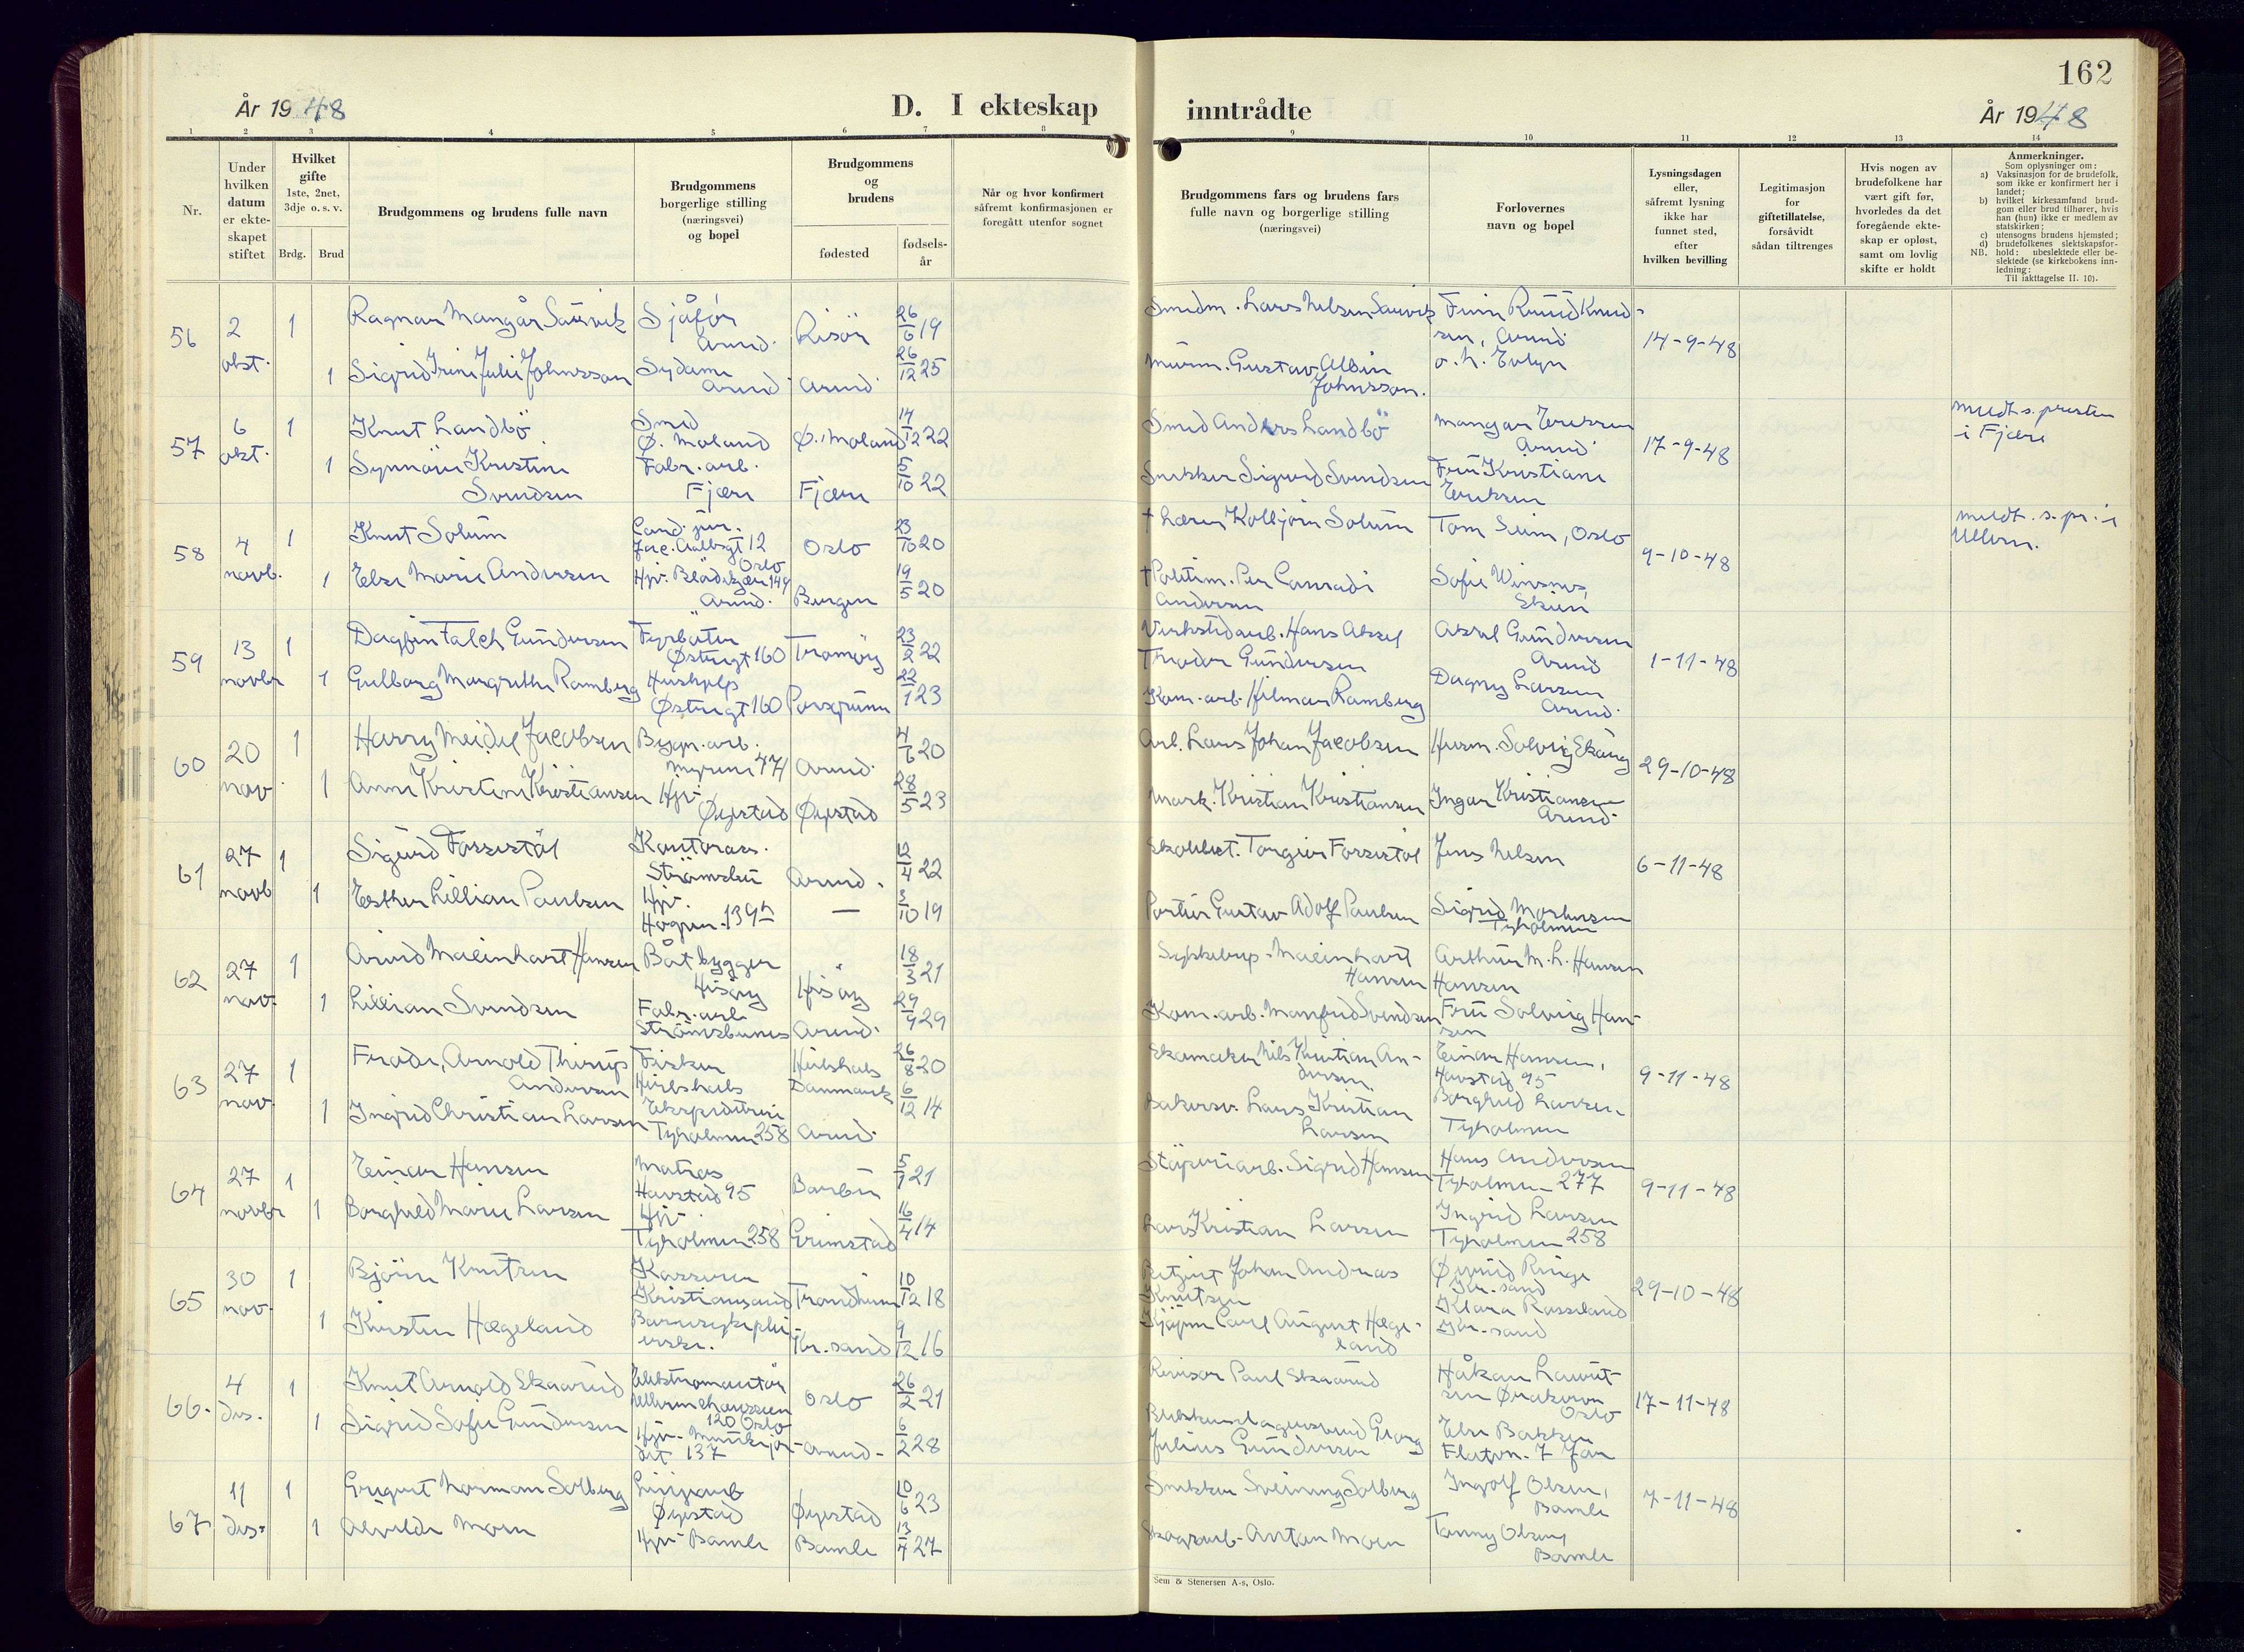 162
År 1948
D. I ekteskap inntrådte
År 1948
1 2 3 4 5 6 7 8 9 10 11 12 13 14
Nr.
Under hvilken datum er ekteskapet stiftet
Hvilket gifte 1ste, 2net, 3dje o. s. v.
Brdg. Brud
Brudgommens og brudens fulle navn
Brudgommens borgerlige stilling (næringsvei) og bopel
Brudgommens og brudens
fødested
fødsels-år
Når og hvor konfirmert såfremt konfirmasjonen er foregått utenfor sognet
Brudgommens fars og brudens fars fulle navn og borgerlige stilling (næringsvei)
Forlovernes navn og bopel
Lysningsdagen eller, såfremt lysning ikke har funnet sted, efter hvilken bevilling
Legitimasjon for giftetillatelse, forsåvidt sådan tiltrenges
Hvis nogen av brudefolkene har vært gift før, hvorledes da det foregående ekteskap er opløst, samt om lovlig skifte er holdt
Anmerkninger.
Som oplysninger om:
a) Vaksinasjon for de brudefolk, som ikke er konfirmert her i landet;
b) hvilket kirkesamfund brudgom eller brud tilhører, hvis han (hun) ikke er medlem av statskirken;
c) utensogns brudens hjemsted;
d) brudefolkenes slektskapsforhold: ubeslektede eller beslektede (se kirkebokens innledning:
NB.
Til iakttagelse II. 10).
56 2 okt. 1 Ragnar Mangår Saurvik Sjåfør Arend. Risör 26/6 19 Smedm. Lars Nelsen Saurvik Finn Ruud Knudsen, Arend 14-9-48
1 Sigrid Irene Julie Johnsson Sydame Arend. Arend. 26/12 25 Murm. Gustav Albin Johnsson. o. h. Evlyn
57 6 okt. 1 Knut Landbö Smed Ø. Moland Ø. Moland 14/12 22 Smed Anders Landbö Mangar Eriksen Arend 17-9-48 medt s. presten i Fjære
1 Synnöve Kristine Svendsen Fabr. arb. Fjære Fjære 5/10 22 Snekker Sigurd Svendsen Fru Kristiane Eriksen
58 4 novb. 1 Knut Solum Cand. jur. Jac. Aallsgt 12 Oslo Oslo 23/10 20 † Lærer Kolbjörn Solum Tom Seim, Oslo 9-10-48 medt. s. pr. i Ullern.
1 Else Marie Andersen Hjv. Blödekjær 149 Arend. Bergen 19/5 20 † Politim. Per Conradi Andersen Sofie Winsnes Skien
59 13 novbr 1 Dagfin Falch Gundersen Fyrböter Østregt 160 Tromöy 23/2 22 Verkstedarb. Hans Aksel Theodor Gundersen Aksel Gundersen Arend 1-11-48
1 Gulborg Margrethe Ramberg Hushjelp Østregt 160 Porsgrunn 22/1 23 Kom. arb. Hilmar Ramberg Dagny Larsen Arend.
60 20 nov. 1 Harry Meidel Jacobsen Bygn. arb. Myrene 471 Arend. 20 Arb. Lars Johan Jacobsen Husm. Solveig Skaug 29-10-48
1 Anne Kristine Kristiansen Hjv. Øyestad Øyestad 28/5 23 Mask. Kristian Kristiansen Ingar Kristiansen Arend.
61 27 novb 1 Sigurd Forsetöl Kontorass. Strömsbu Arend. 12/4 22 Torgeir Forsetöl Jens Nelsen 6-11-48
1 Esther Lillian Paulsen Hjv. — 3/10 19 Portier Gustav Adolf Paulsen Sigrid Mortensen Tyholmen
62 27 nov. 1 Arvid Meinhart Hansen Båtbygger Hisöy Hisöy 18/3 21 Meinhart Hansen Arthur M. L. Hansen Hansen
1 Lillian Svendsen Fabr. arb Strömsbunes Arend. 29/9 29 Kom. arb. Manfred Svendsen Fru Solveig Hansen
63 27 nov. 1 Frode, Arnold Thirup Andersen Fisker Hirtshals Hirtshals Danmark 26/8 20 Skomaker Nils Kristian Andersen Einar Hansen, Havstad 95 9-11-48
1 Ingrid Christian Larsen Ekspeditrise Tyholmen 258 Arend. 6/12 14 Bakersv. Lars Kristian Larsen Borghild Larsen Tyholmen
64 27 novbr 1 Einar Hansen Matros Havstad 95 Barbu 5/1 21 Støperiarb. Sigrid Hansen Hans Andersen Tyholmen 277 9-11-48
1 Borghild Marie Larsen Hjv. Tyholmen 258 Grimstad 16/4 14 Lars Kristian Larsen Ingrid Larsen Tyholmen 258
65 30 nov. 1 Björn Knutsen Kasserer Kristiansand Trondheim 10/12 18 Betjent Johan Andreas Knutsen Øyvind Ringe Kr. sand 29-10-48
1 Kirsten Hægeland Barnesykepleierske. Kr. sand 9/12 16 Carl August Hægeland Klara Rosseland Kr. sand
66. 4 des. 1 Knut Arnold Skaarud Elektromontör Ullernchausseen 120 Oslo Oslo 26/2 21 Revisor Paul Skaarud Håkon Lauritsen Oslo 17-11-48
1 Sigrid Sofie Gundersen Hjv. 137 Arend. 6/2 28 Georg Julius Gundersen Else Bakken
67 11 des. 1 Gregert Norman Solberg Linjearb Øyestad Øyestad 10/6 23 Snekker Sveinung Solberg Ingolf Olsen, Bamle 7-11-48
1 Alvilde Moen Hjv. Bamle Bamle 13/4 27 Skogsarb. Anton Moen Tanny Olsen, Bamle
Sem & Stenersen A-s, Oslo.